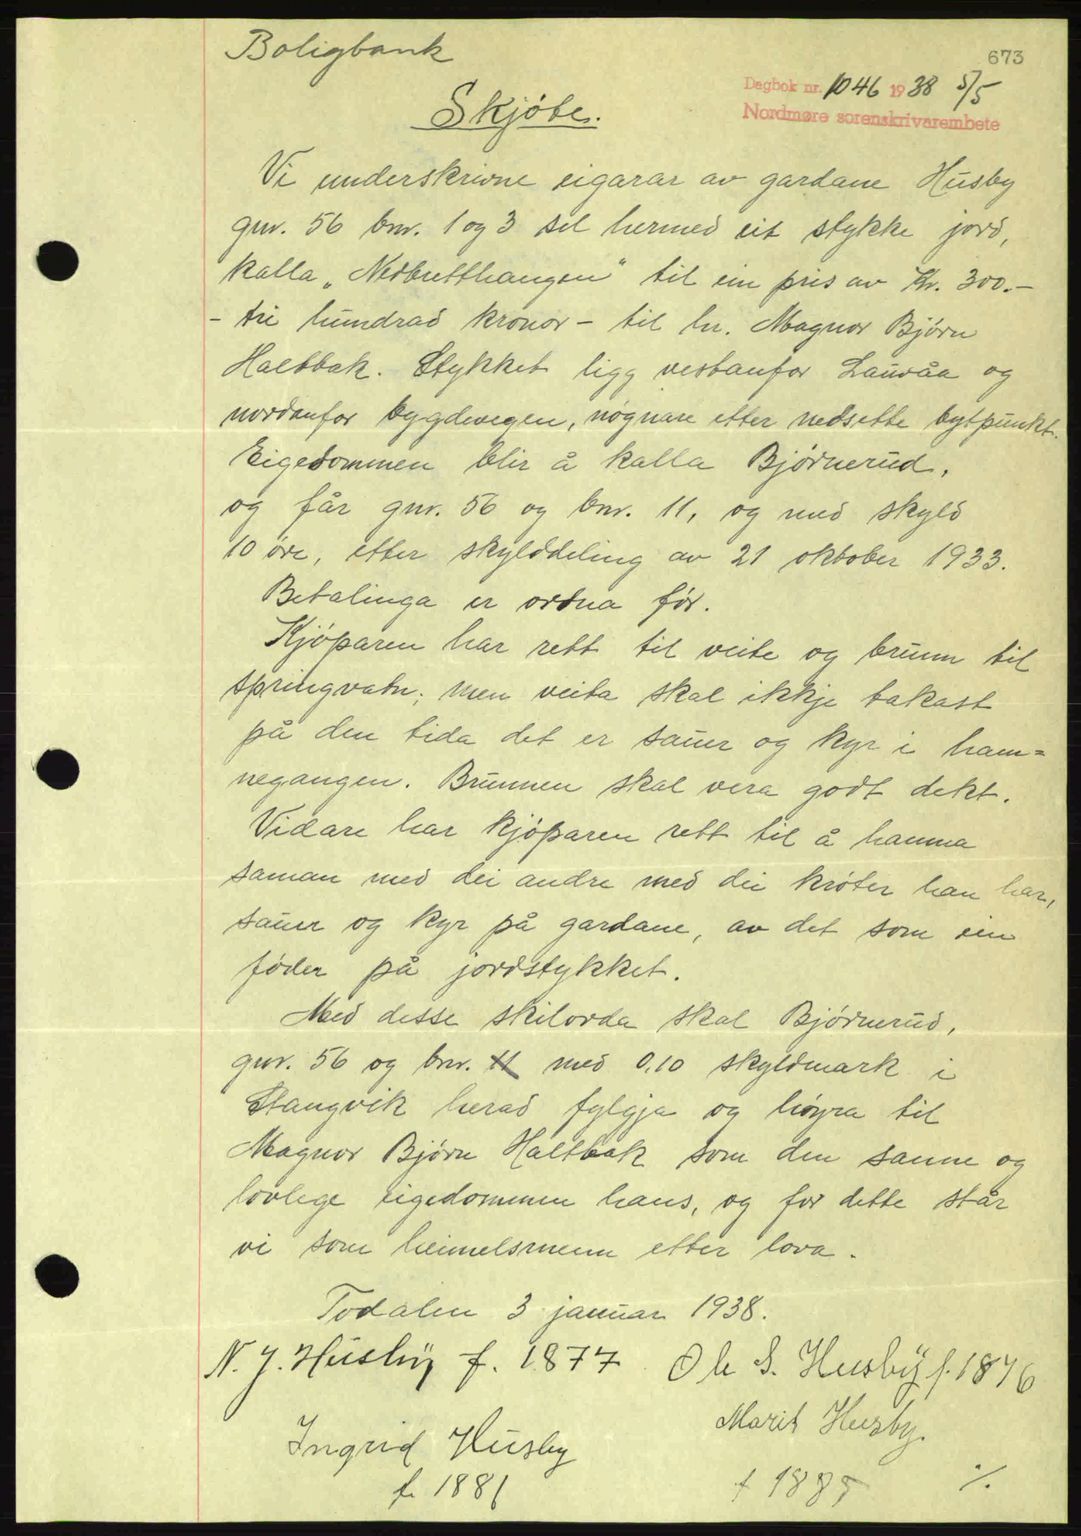 Boligbank
673
Dagbok nr. 1046 1938 5/5
Nordmøre sorenskrivarembete
Skjöte.
Vi underskrivne eigarar av gardane Husby
gnr. 56 bnr. 1 og 3 sel hermed eit stykke jord,
kalla „Nedbretthaugen" til ein pris av Kr. 300.-
- tri hundrad kronor - til hr. Magnor Bjørn
Haltbak. Stykket ligg vestanfor Lauvåa og
nordanfor bygdevegen, nøgnare etter nedsette bytpunkt.
Eigedommen blir å kalla Bjørnerud,
og får gnr. 56 og bnr. 11, og med skyld
10 öre, etter skylddeling av 21 oktober 1933.
Betalinga er ordna før.
Kjöparen har rett til veite og brunn til
springvatn, men veita skal ikkje takast
på den tida det er sauer og kyr i ham=
negangen. Brunnen skal vera godt dekt.
Vidare har kjöparen rett til å hamna
saman med dei andre med dei krøter han har,
sauer og kyr på gardane, av det som ein
föder på jordstykket.
Med desse skilorda skal Bjørnerud,
gnr. 56 og bnr. 11 med 0,10 skyldmark i
Stangvik herad fylgja og høyra til
Magnor Bjørn Haltbak som den sanne og
lovlege eigedommen hans, og for dette står
vi som heimelsmenn etter lova.
Todalen 3 januar 1938.
N. J. Husby f. 1877 Ole S. Husby f. 1876
Ingrid Husby Marit Husby.
f. 1881 f 1885 %